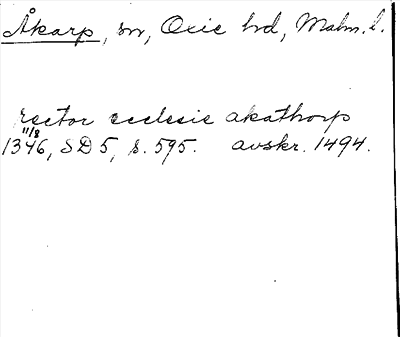 Åkarp, sn, Oxie hd, Malm. l.
rector ecclesie akathorp
11/8
1346, SD 5, s. 595. avskr. 1494.